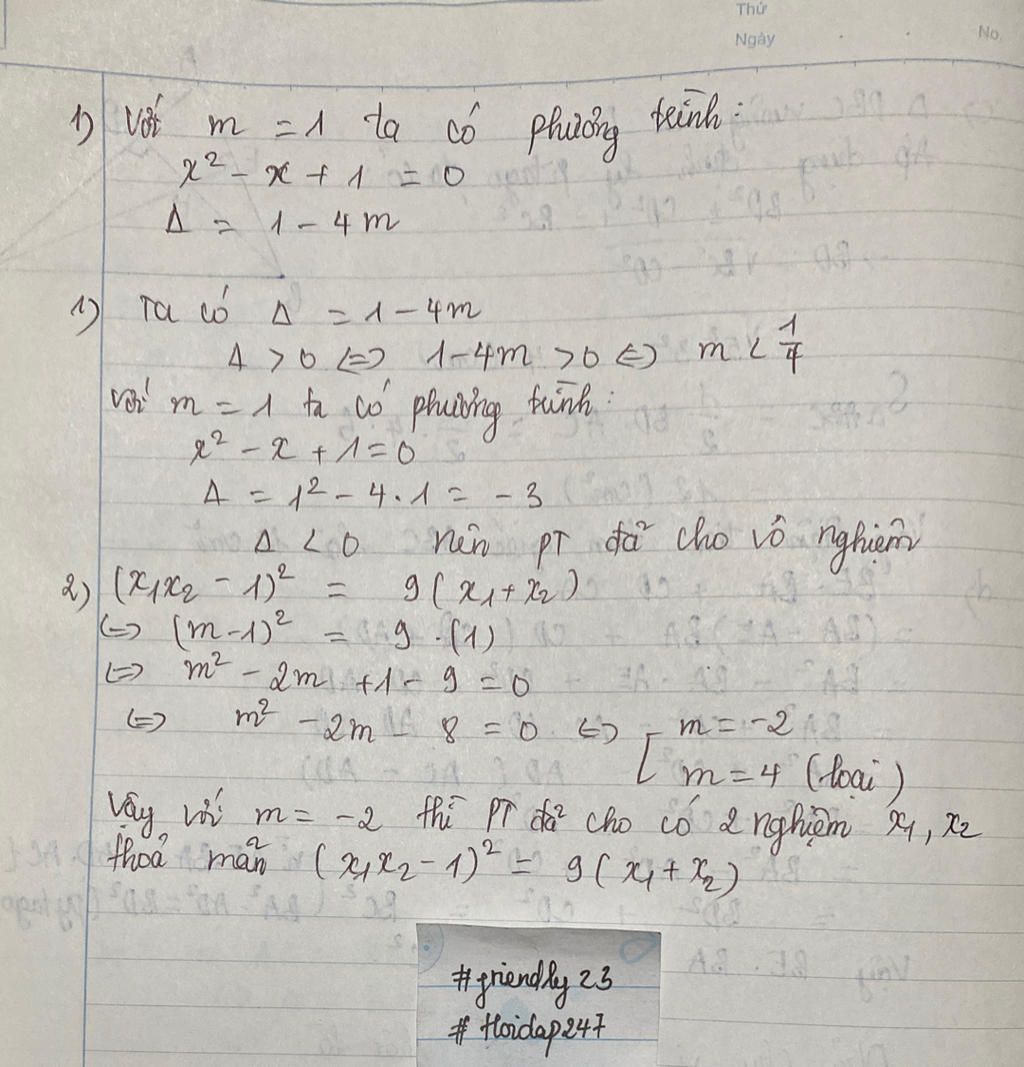 Thứ
Ngày
No.
1) Với m = 1 ta có phương trình:
x² - x + 1 = 0
Δ = 1 - 4m
1) Ta có Δ = 1 - 4m
Δ > 0 <=> 1 - 4m > 0 <=> m < 1/4
Với m = 1 ta có phương trình:
x² - x + 1 = 0
Δ = 1² - 4 . 1 = -3
Δ < 0 nên PT đã cho vô nghiệm
2) (x₁x₂ - 1)² = 9(x₁ + x₂)
<=> (m - 1)² = 9 . (1)
<=> m² - 2m + 1 - 9 = 0
<=> m² - 2m - 8 = 0 <=> [ m = -2
m = 4 (loại)
Vậy với m = -2 thì PT đã cho có 2 nghiệm x₁, x₂
thoả mãn (x₁x₂ - 1)² = 9(x₁ + x₂)
#friendly23
#Hoidap247